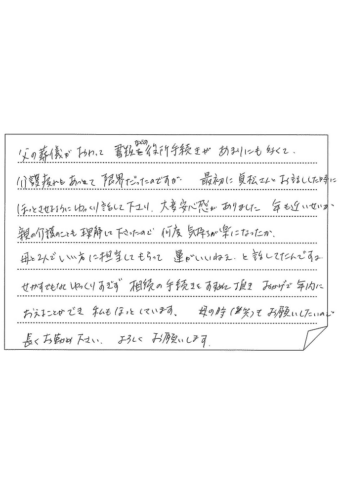 父の葬儀がおわって 書類や役所手続きが あまりにも多くて、
介護疲れもあいまって 限界だったのですが 最初に貞松さんとお話しした時に
ほっとさせるようにゆっくり話して下さり、大変安心感がありました 年も近いせいか
親の介護のことも理解して下さったので 何度 気持ちが楽になったか。
母と2人でいい方に担当してもらって 運がいいねぇ と話してたんですよ
せかすでもなくゆっくりすぎず 相続の手続きを すすめて頂き おかげで年内に
おえることができ 私もほっとしています。 母の時(笑)も お願いしたいので
長くお勤め下さい。 よろしく お願いします。